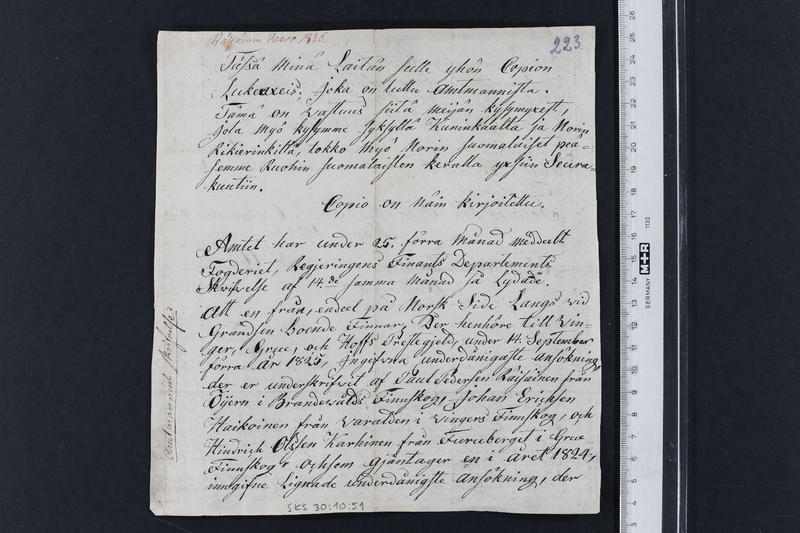 Räisäinen Pavo 1826.
223.
Tässä Minä Laitân teille yhên Copion
Lukexeis. joka on tullu Amtmannista.
Tämä on Vastuus siitä meijän kysymyxest,
jota myô kysymme syksyllä Kuninkaalta ja Norin
Rikierinkiltä, tokko myô Norin suomalaiset pea-
semme Ruohin suomalaisten keralla yxsiin Seura-
kuntiin.
Copio on näin kirjoitettu.
Amtet har under 25. förra Månad meddeelt
Fogderiet, Regjeringens Finants Departements
Skrifvelse af 14.de samma Månad så Lydade.
Att en från, endeel på Norsk Side Langs vid
Grændsen boende Finnar, Der henhöre till Vin-
ger, Grue, och Hoffs Prestegield, under 14. September
förra år 1825, Ingifvna underdånigste ansökning,
der er underskrifvit af Paul Pedersen Räisäinen från
Öijern i Brandevålds Finnskog, Johan Erichsen
Haikoinen från Varalden i Vingers Finnskog, och
Hindrich Olssen Karhinen från Furuberget i Grue
Finnskog, ochsom gjäntager en i året 1824,
inngifne Lignade underdånigste ansökning, der
SKS 30:10:51
GERMANY
M+R
1130
26
25
24
23
22
21
20
19
18
17
16
15
14
13
12
11
10
9
8
7
6
5
4
3